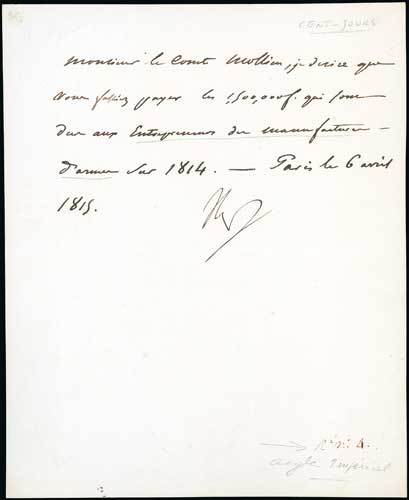 CENT-JOURS
Monsieur le Comte Mollien, je desire que
vous fassiez payer les 1,500,000f. qui sont
dus aux Entrepreneurs des manufactures
d'armes sur 1814. — Paris le 6 avril
1815.
aigle Imperial